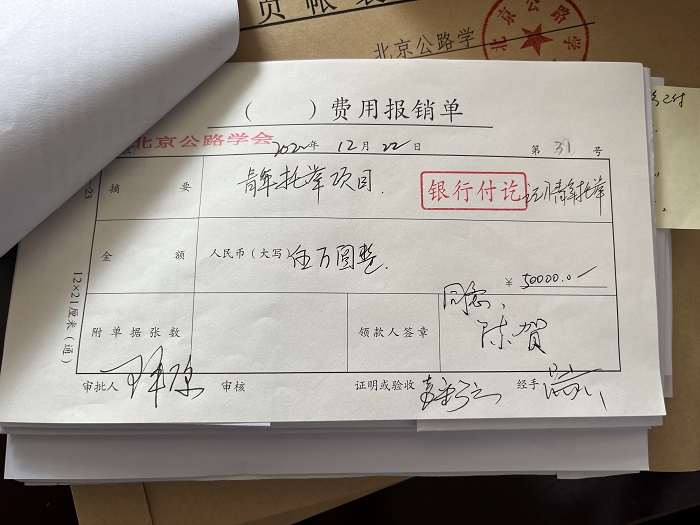 北京公路学
北京公路学
（ ）费用报销单
北京公路学会 2022年 12月 22日 第 31 号
摘要 青年托举项目 银行付讫
金额 人民币（大写）伍万圆整 ¥ 50000.0
同意、
附单据张数 领款人签章 陈贺
审批人 审核 证明或验收 经手
12×21厘米（通）